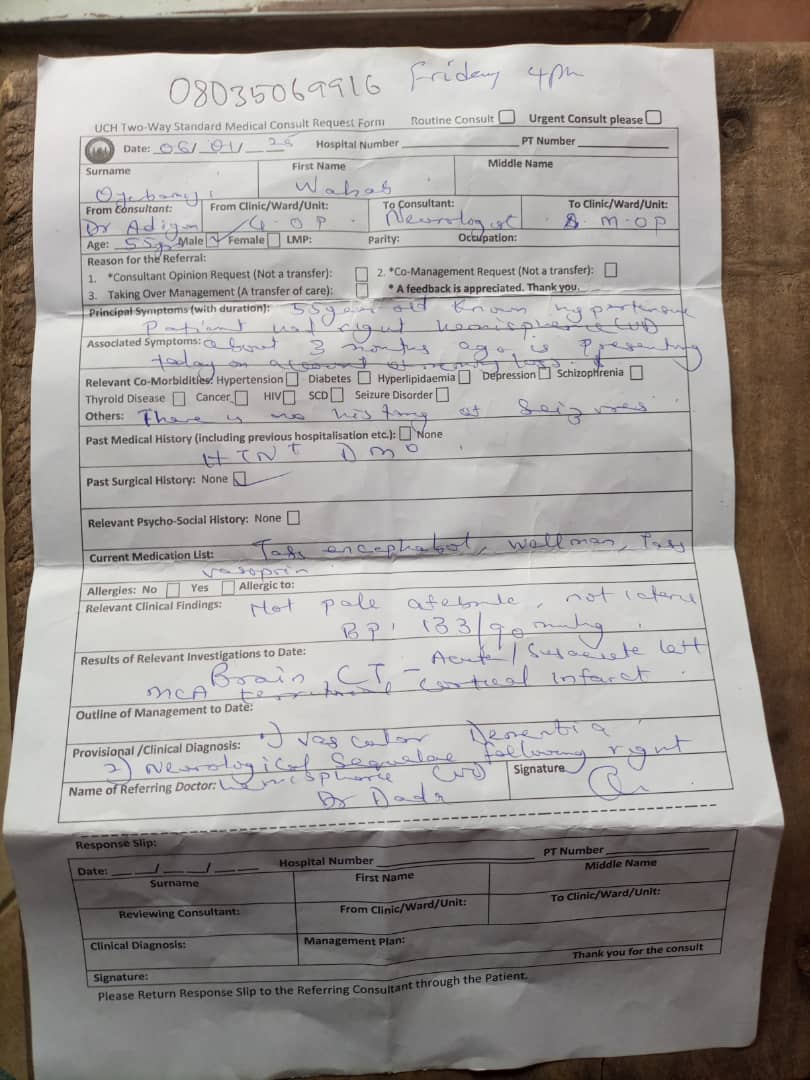 08035069916 Friday 4pm
UCH Two-Way Standard Medical Consult Request Form Routine Consult Urgent Consult please
Date: 06/01/ Hospital Number PT Number
Surname First Name Middle Name
Wahab
From Consultant: From Clinic/Ward/Unit: To Consultant: To Clinic/Ward/Unit:
Dr Adigun G.O.P. Neurologist M.O.P
Age: 55yrs Male Female LMP: Parity: Occupation:
Reason for the Referral:
1. *Consultant Opinion Request (Not a transfer): 2. *Co-Management Request (Not a transfer):
3. Taking Over Management (A transfer of care): * A feedback is appreciated. Thank you.
Principal Symptoms (with duration): 55 year old known hypertensive
Patient had right hemispheric CVD
Associated Symptoms: about 3 months ago is presenting
today on account of memory loss
Relevant Co-Morbidities: Hypertension Diabetes Hyperlipidaemia Depression Schizophrenia
Thyroid Disease Cancer HIV SCD Seizure Disorder
Others: There is no history of seizures
Past Medical History (including previous hospitalisation etc.): None
HTN+ DM0
Past Surgical History: None
Relevant Psycho-Social History: None
Current Medication List: Tabs encephabol, wellman, Tabs
vasoprin
Allergies: No Yes Allergic to:
Relevant Clinical Findings: Not pale afebrile, not icteric
BP: 133/90 mmHg
Results of Relevant Investigations to Date:
Brain CT - Acute/Subacute left
MCA territorial cortical infarct
Outline of Management to Date:
Provisional /Clinical Diagnosis: 1) Vascular Dementia
2) Neurological Sequelae following right
hemispheric CVD
Name of Referring Doctor: Dr Dada Signature
Response Slip:
Date: __/__/__ Hospital Number PT Number
Surname First Name Middle Name
Reviewing Consultant: From Clinic/Ward/Unit: To Clinic/Ward/Unit:
Clinical Diagnosis: Management Plan:
Thank you for the consult
Signature:
Please Return Response Slip to the Referring Consultant through the Patient.